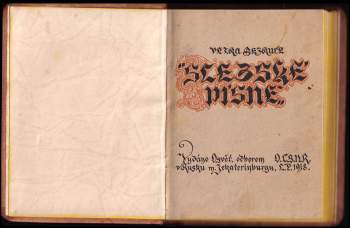 PETRA BEZRUČE
"SLEZSKÉ
PÍSNĚ"
Vydáno Osvět. odborem O.Č.S.N.R.
v Rusku m. Jekaterinburgu, L.P. 1918.